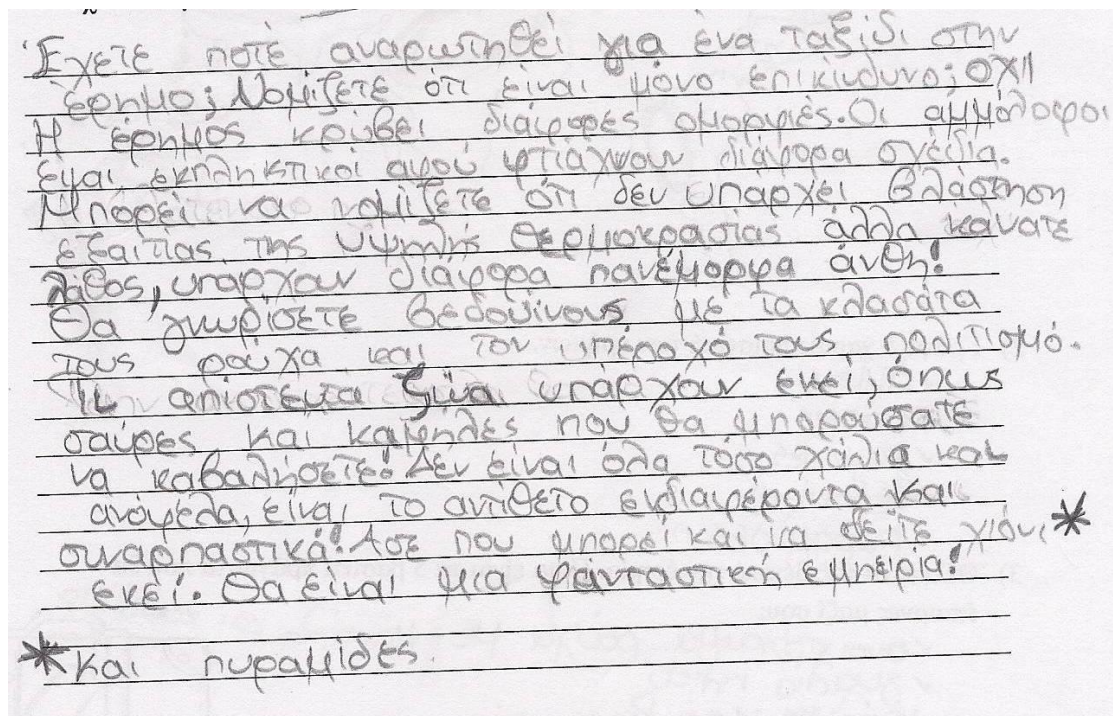 Έχετε ποτέ αναρωτηθεί για ένα ταξίδι στην
έρημο; Νομίζετε ότι είναι μόνο επικίνδυνο; ΟΧΙ!
Η έρημος κρύβει διάφορες ομορφιές. Οι αμμόλοφοι
είναι εκπληκτικοί αφού φτιάχνουν διάφορα σχέδια.
Μπορεί να νομίζετε ότι δεν υπάρχει βλάστηση
εξαιτίας της υψηλής θερμοκρασίας άλλα κάνατε
λάθος, υπάρχαν διάφορα πανέμορφα άνθη!
Θα γνωρίσετε βεδουίνους με τα κλασάτα
τους ρούχα και τον υπέροχό τους πολιτισμό.
Τι απίστευτα ζώα υπάρχουν εκεί, όπως
σαύρες και καμήλες που θα μπορούσατε
να καβαλήσετε! Δέν είναι όλα τόσο χάλια και
ανόφελα, είναι το αντίθετο ενδιαφέροντα και
συναρπαστικά! Ασε που μπορεί και να δείτε χιόνι *
εκεί. Θα είναι μια φανταστική εμπειρία!
* και πυραμίδες.